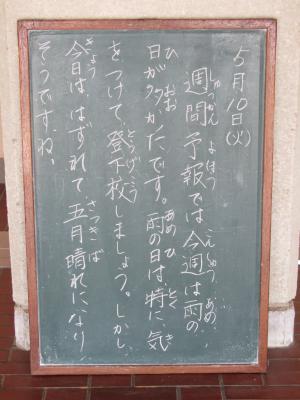 5月10日(火)
しゅうかん よほう こんしゅう あめ
週間予報では今週は雨の
ひ おお あめ ひ とく き
日が多かたです。雨の日は、特に気
とうげこう
をつけて登下校しましょう。しかし
きょう さつきば
今日は、はずれて五月晴れになり
そうですね。